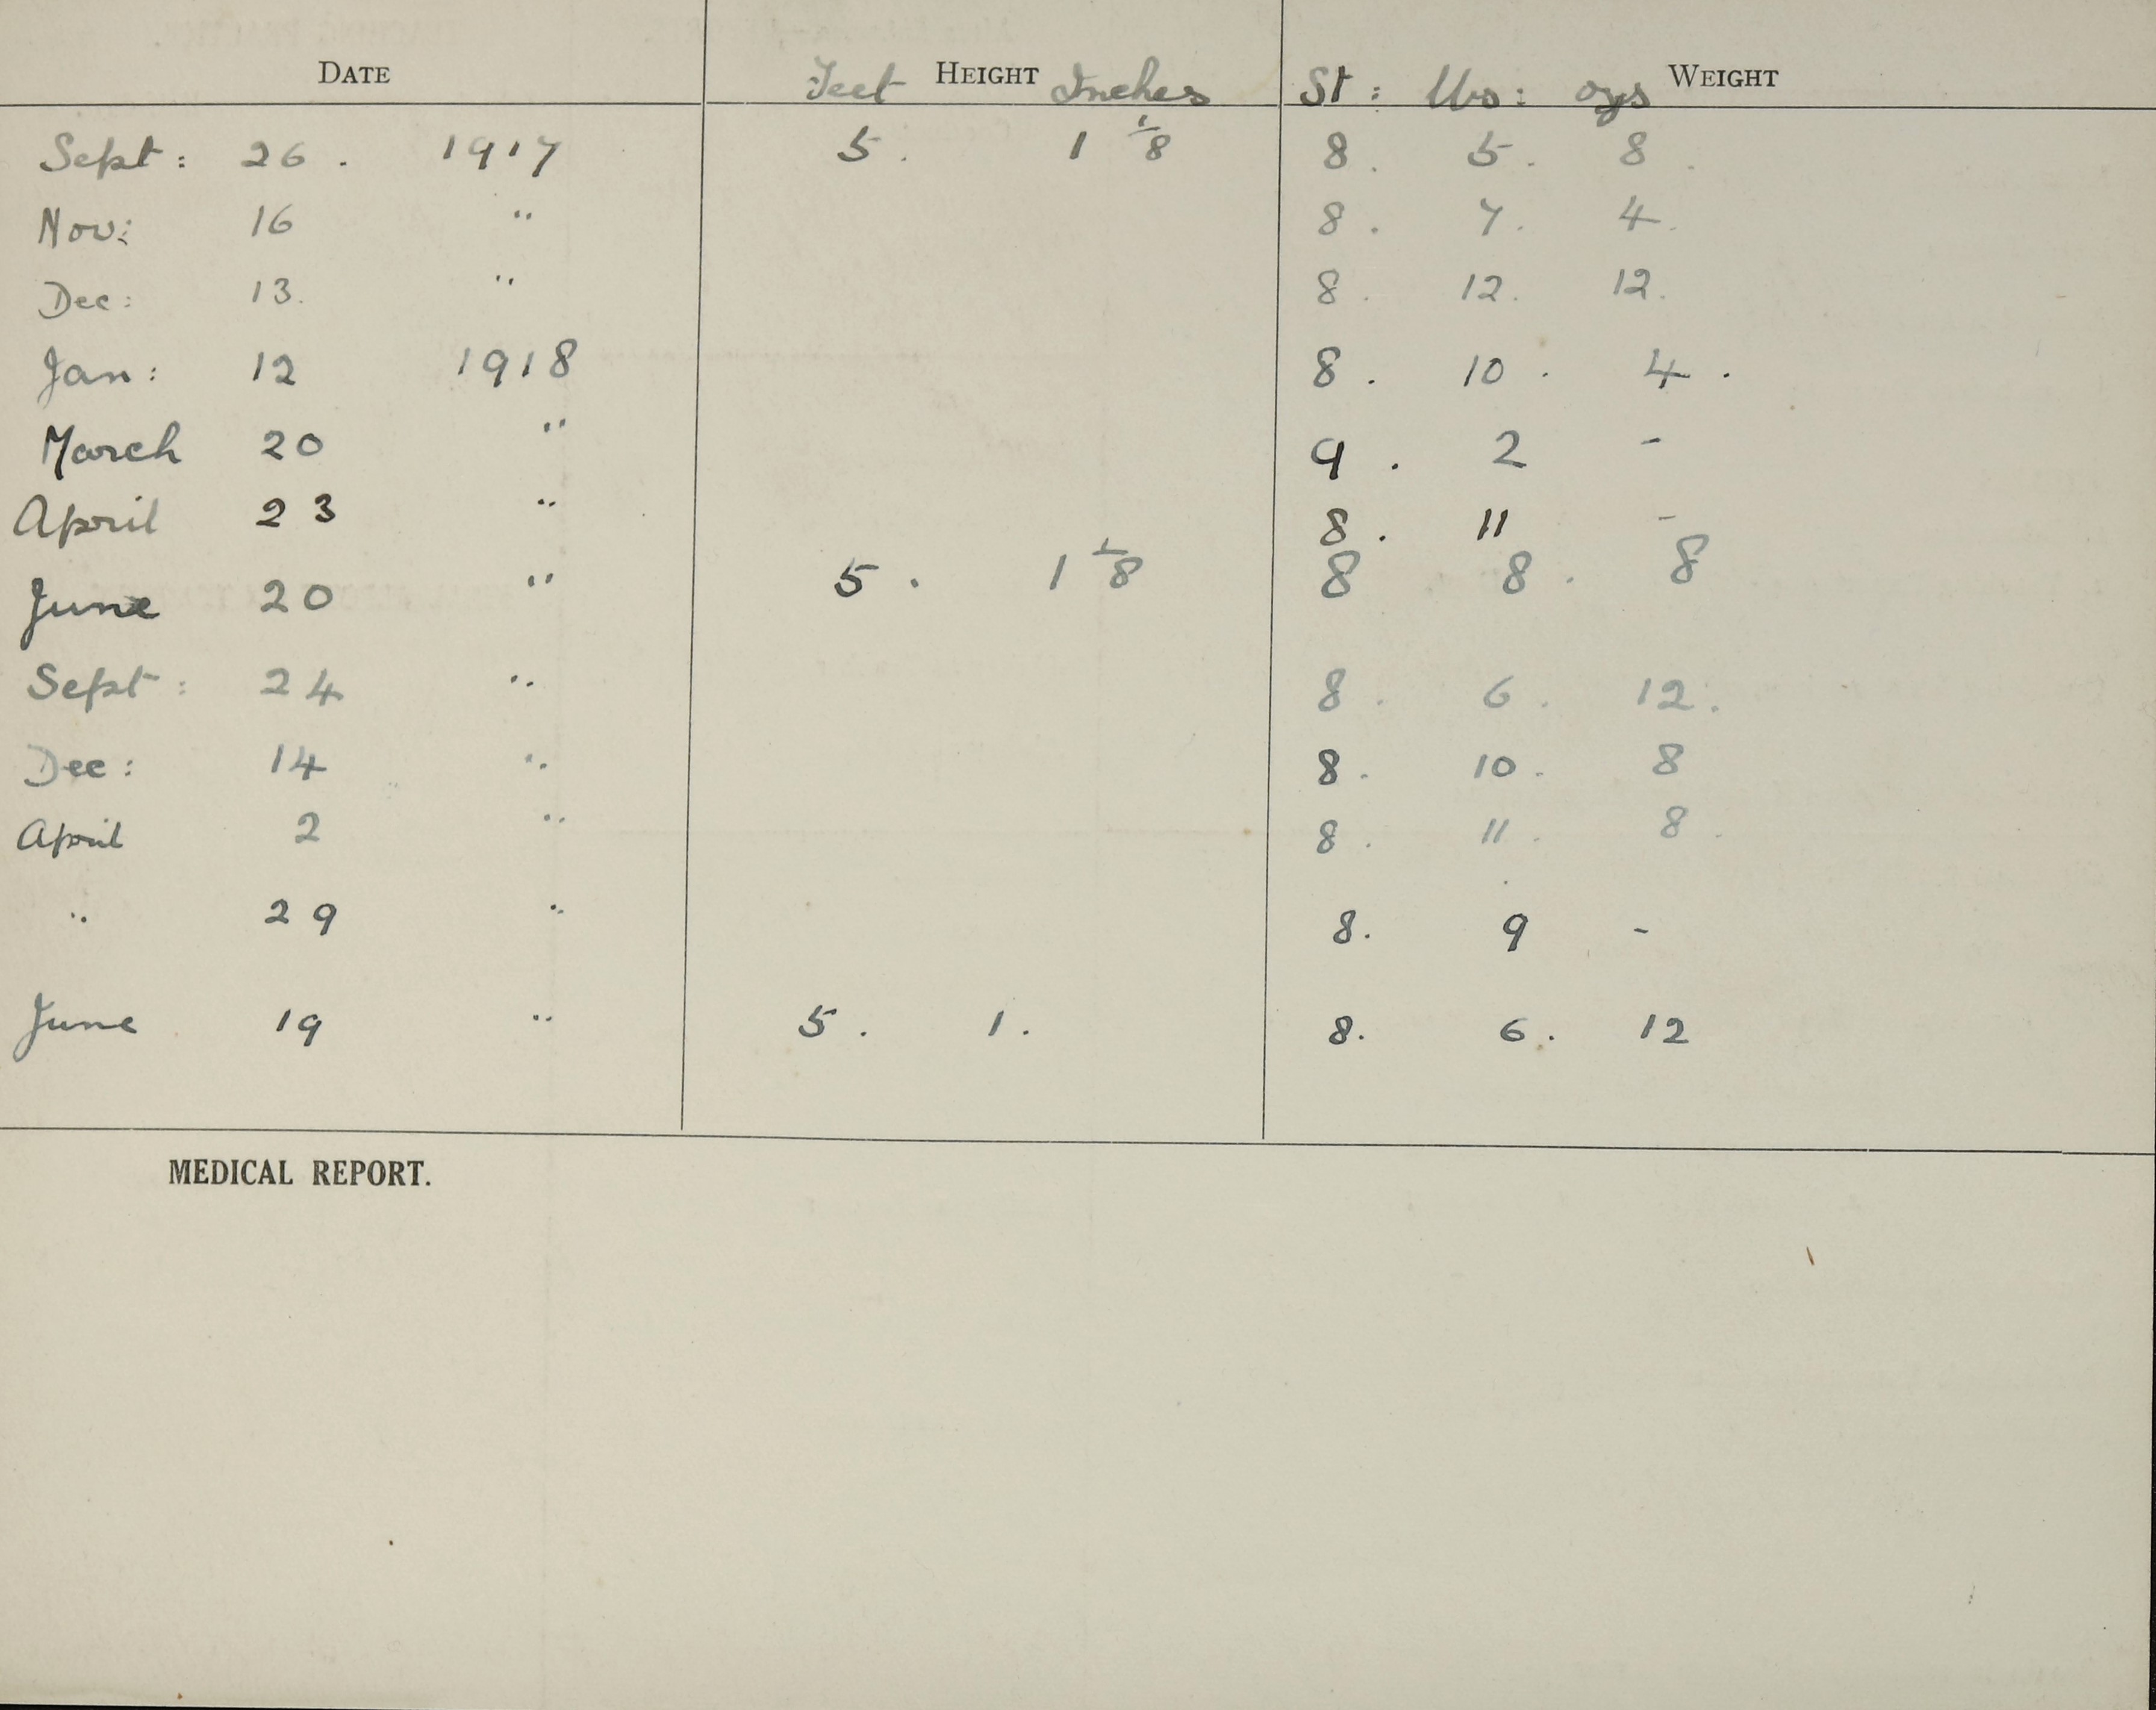 DATE Feet HEIGHT Inches St: lbs: ozs WEIGHT
Sept: 26. 1917 5. 1 1/8 8. 5. 8.
Nov: 16 " 8. 7. 4.
Dec: 13. " 8. 12. 12.
Jan: 12 1918 8. 10. 4.
March 20 " 9. 2 -
April 23 " 8. 11 -
June 20 " 5. 1 1/8 8 8. 8
Sept: 24 " 8. 6. 12.
Dec: 14 " 8. 10. 8
April 2 " 8. 11. 8.
" 29 " 8. 9 -
June 19 " 5. 1. 8. 6. 12
MEDICAL REPORT.